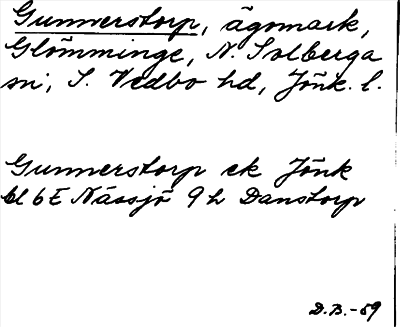 Gunnerstorp, ägomark,
Glömminge, N. Solberga
sn, S. Vedbo hd, Jönk. l.
Gunnerstorp ek Jönk
bl 6E Nässjö 9 h Danstorp
D.B.-59